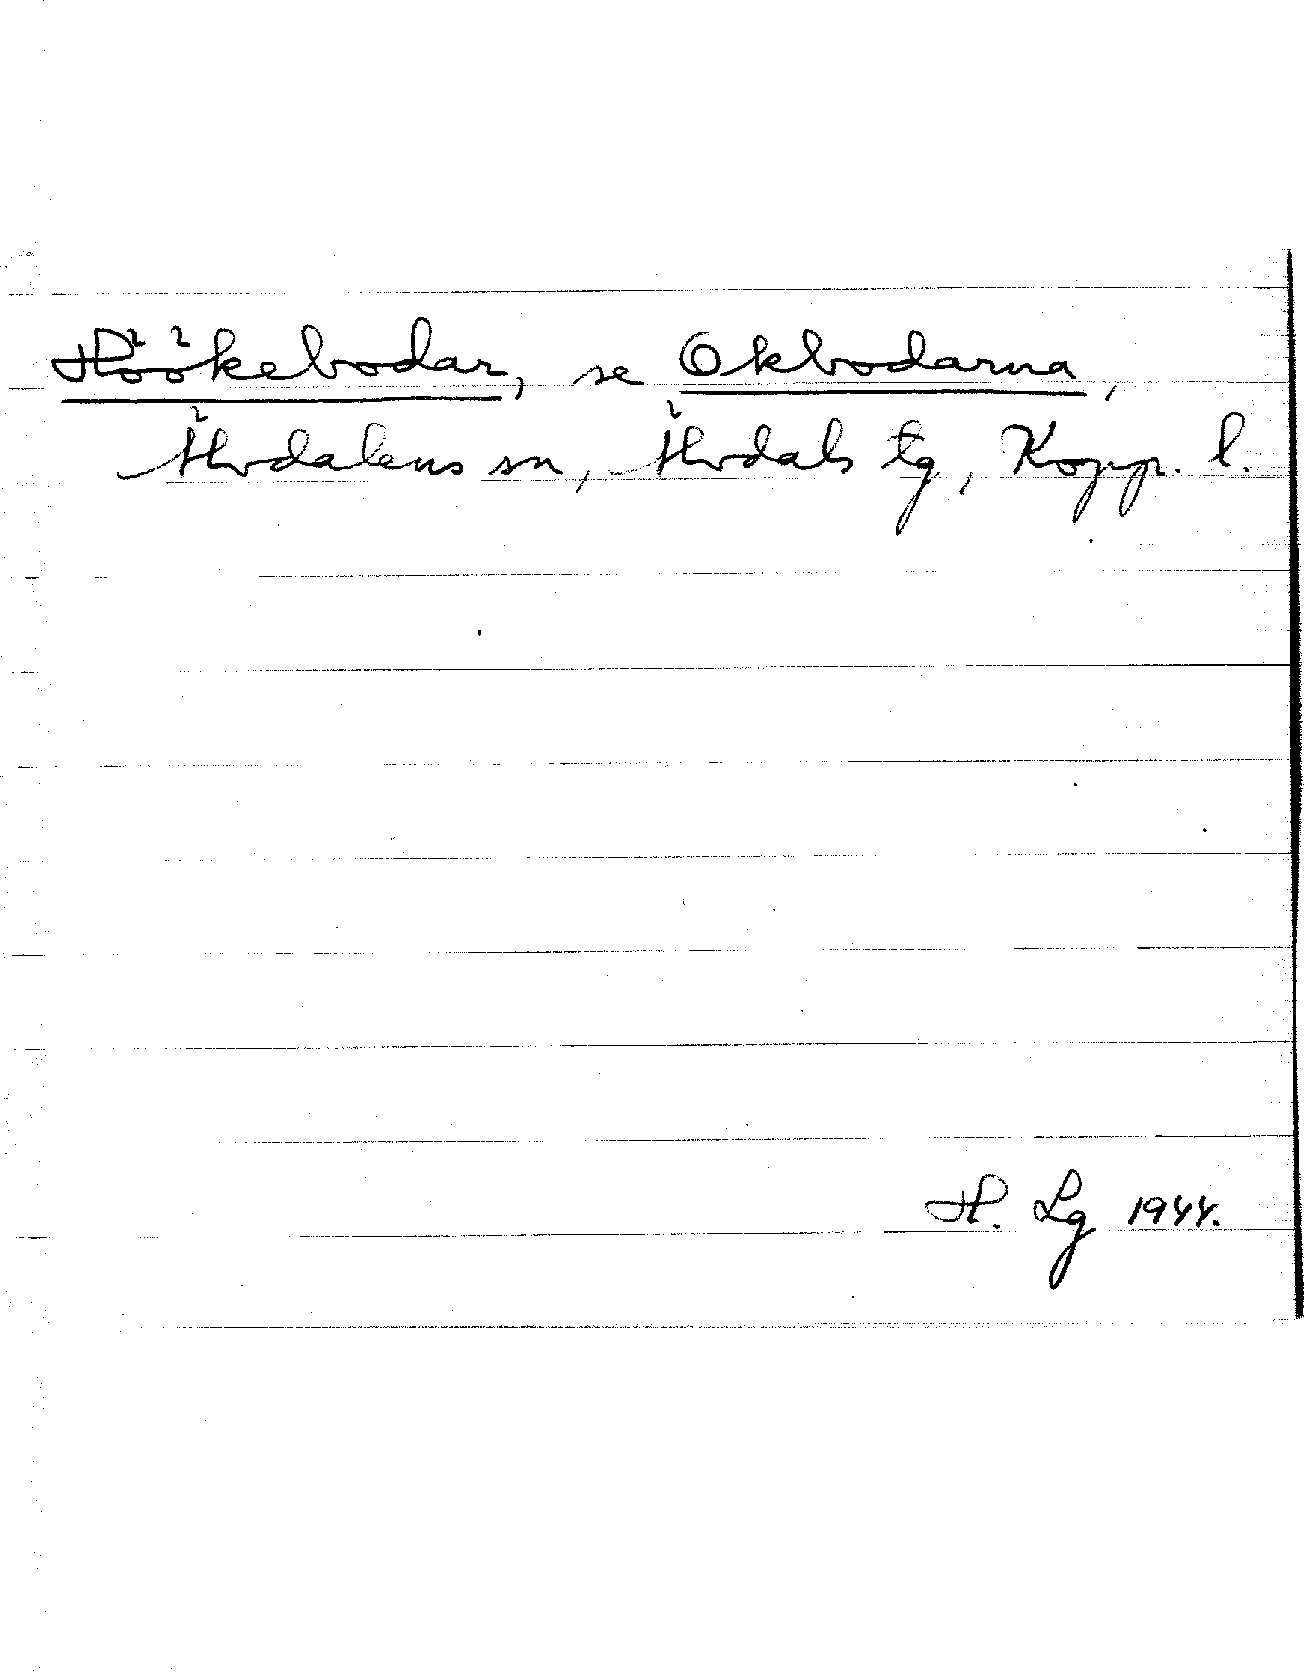 Höökebodar, se Okbodarna,
Älvdalens sn, Älvdals tg, Kopp. l.
H. Lg 1944.